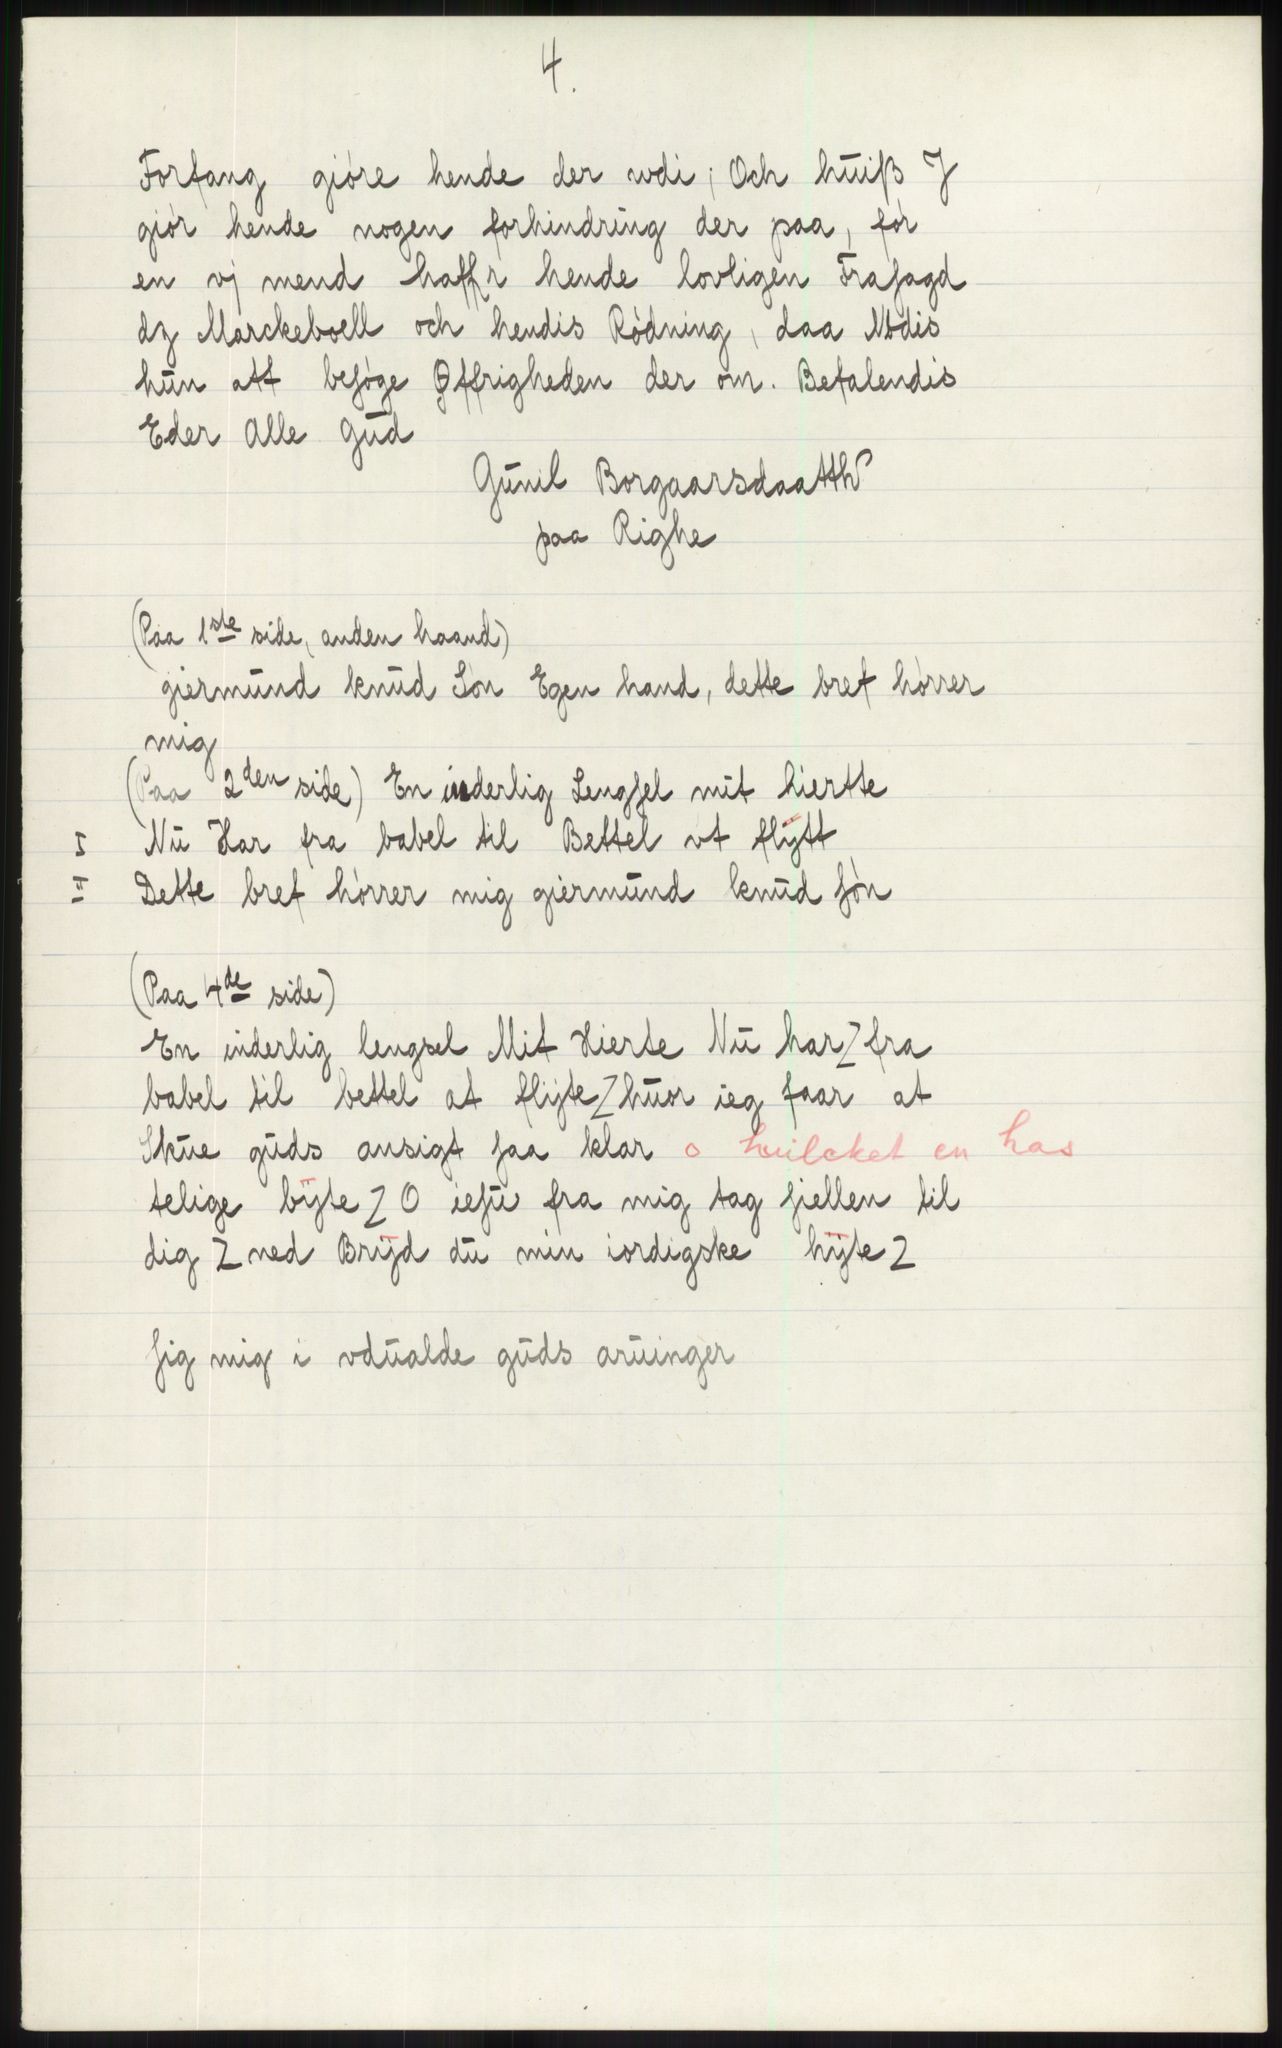 4.
Forfang giöre hende der wdi; Och huiß J
giör hende nogen forhindring der paa, för
en vj mend haffr hende lovligen Frasagd
dz Marckeboell och hendis Rödning, daa Nödis
hun att besöge Øffrigheden der om. Befalendis
Eder Alle Gud
Gunil Borgaarsdaatth
paa Righe
(Paa 1ste side, anden haand)
giermund knud Sön Egen hand, dette bref hörrer
mig
(Paa 2den side) En inderlig Lengsel mit hiertte
I Nu Har fra babel til Bettel vt flÿtt
II Dette bref hörrer mig giermund knud sön
(Paa 4de side)
En inderlig lengsel Mit Hierte Nu har Z fra
babel til bettel at flijte Z huor ieg faar at
Skue guds ansigt saa klar o huilcket en has
telige bÿte Z O iesu fra mig tag siellen til
dig Z ned Brÿd du min iordigske hÿte Z
sig mig i vdualde guds aruinger